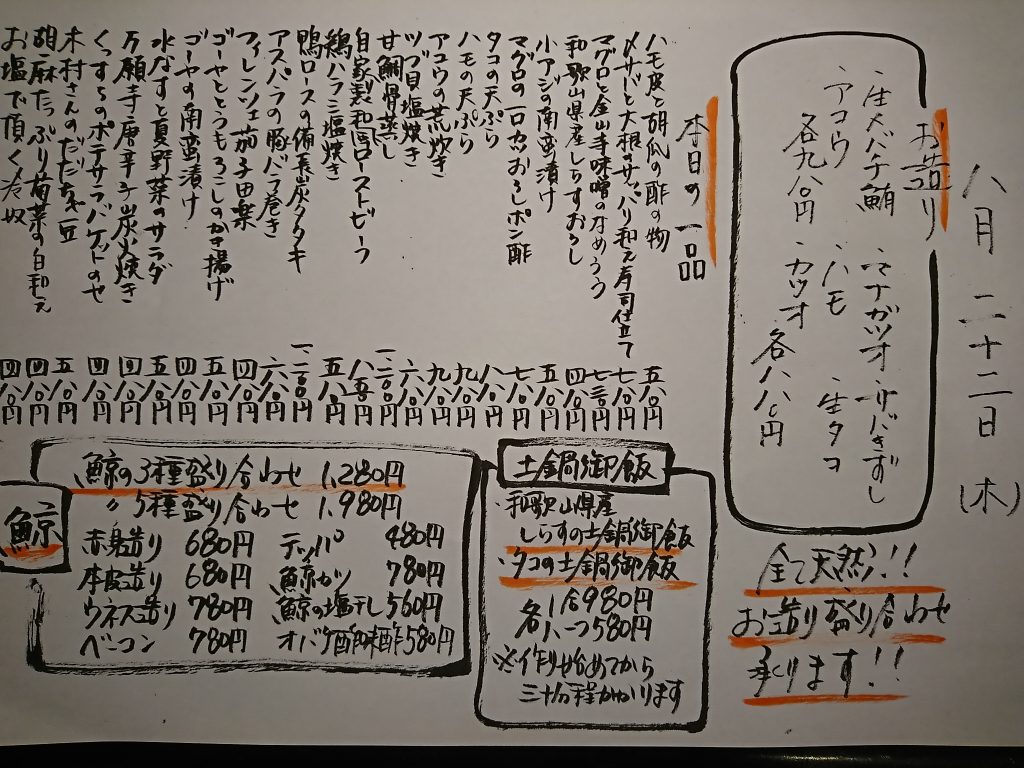 八月二十二日(木)
お造り
・生メバチ鮪 ・マナガツオ ・サバきずし
・アコウ ・ハモ ・生タコ
各九八〇円 ・カツオ 各八八〇円
全て天然!!
お造り盛り合わせ
承ります!!
本日の一品
ハモ皮と胡瓜の酢の物 五八〇円
〆サバと大根のサッパリ和え寿司仕立て 七八〇円
マグロと金山寺味噌のなめろう 七三〇円
和歌山県産しらすおろし 四八〇円
小アジの南蛮漬け 五八〇円
マグロの一口カツおろしポン酢 七八〇円
タコの天ぷら 八八〇円
ハモの天ぷら 九八〇円
アコウの荒炊き 九八〇円
ツブ貝塩焼き 六八〇円
甘鯛骨蒸し
自家製和風ローストビーフ 八五〇円
鶏ハラミ塩焼き 五八〇円
鴨ロースの備長炭タタキ
アスパラの豚バラ巻き 六八〇円
フィレンツェ茄子田楽 四八〇円
ゴーヤととうもろこしのかき揚げ 五八〇円
ゴーヤの南蛮漬け 四八〇円
水なすと夏野菜のサラダ 五八〇円
万願寺唐辛子炭火焼き 四八〇円
ポテサラバケットのせ 四八〇円
木村さんのだだ茶豆 五八〇円
胡麻たっぷり菊菜の白和え 四八〇円
お塩で頂く冷奴 四八〇円
土鍋御飯
・和歌山県産
しらすの土鍋御飯
・タコの土鍋御飯
各1合980円
各ハーフ580円
※作り始めてから
三十分程かかります
鯨
鯨の3種盛り合わせ 1,280円
〃5種盛り合わせ 1,980円
赤身造り 680円 テッパ 480円
本皮造り 680円 鯨カツ 780円
ウネス造り 780円 鯨の塩干し 560円
ベーコン 780円 オバケ酢味噌 580円